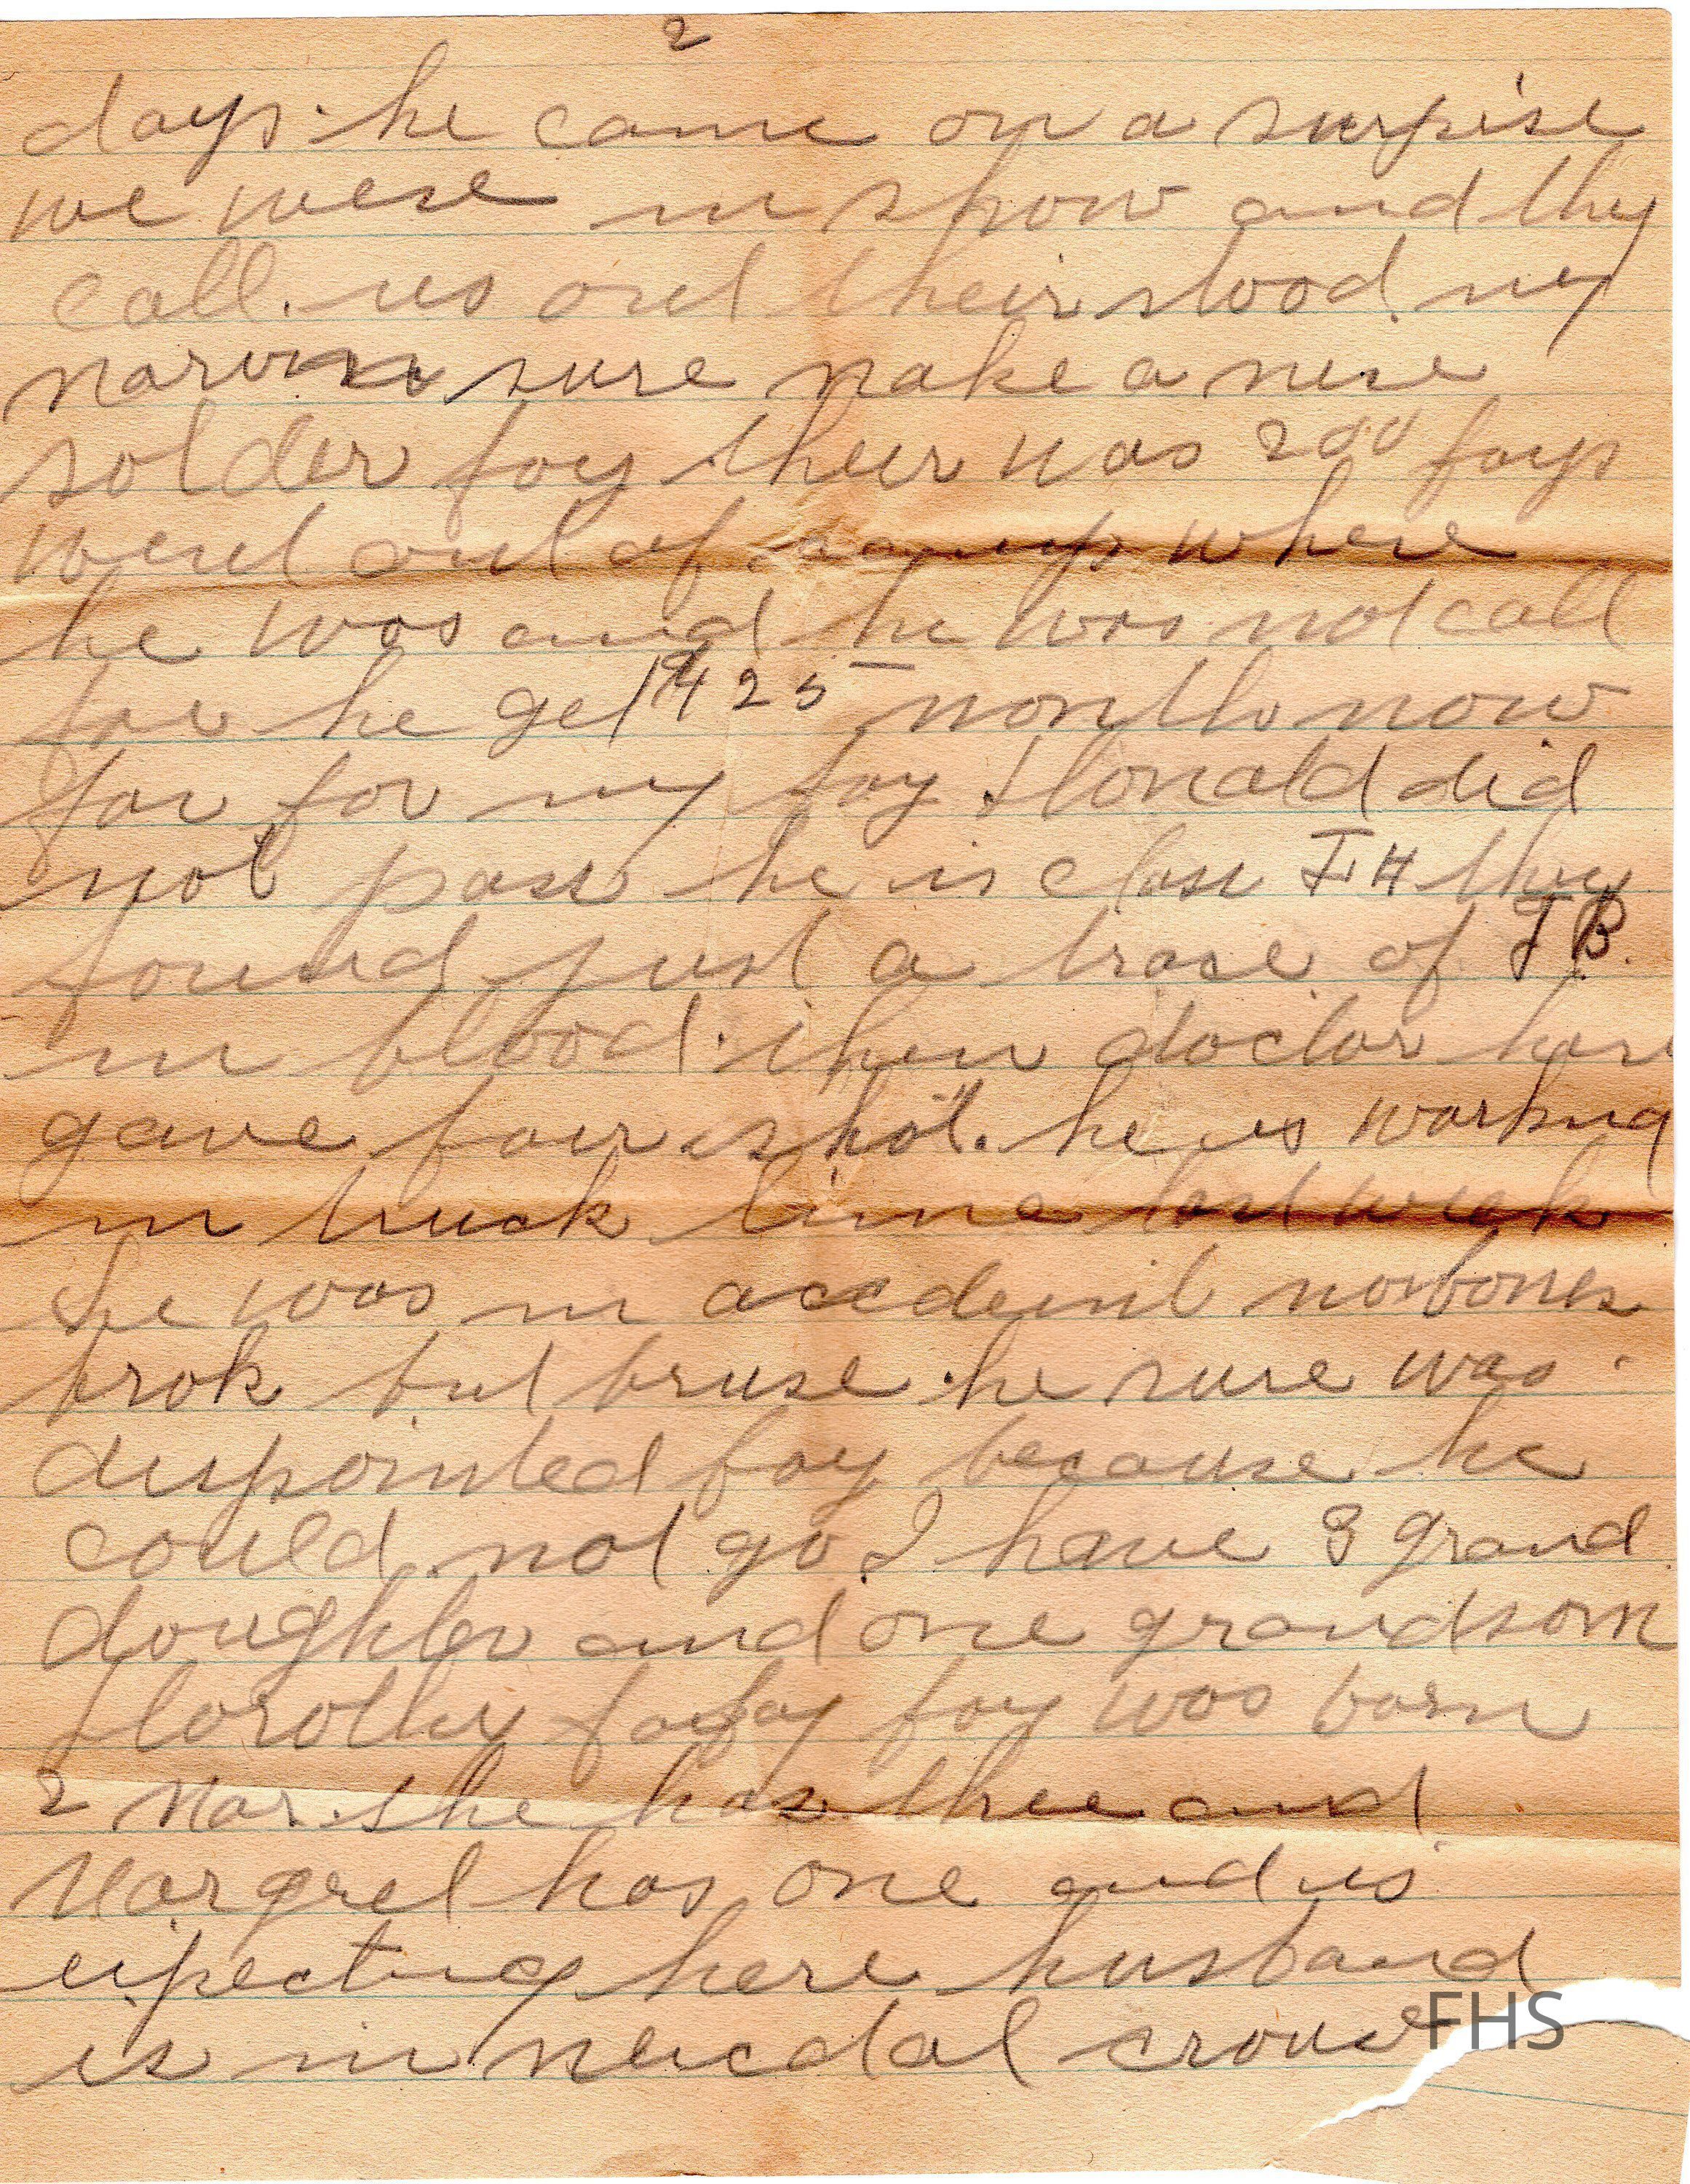 2
days. he came on a surpise
we were in show and they
call. us out their stood my
Marvin sure make a nise
solder foy. their was 200 foys
went out of camp where
he was and he was not call
for he get 425 month now
for for my foy Donald did
not pass he is class F4 they
found just a trase of TB.
in blood. then doctor here
gave four shot. he is working
in truck line last week
he was in accdenit no bones
brok but bruse. he sure was
dispointed foy because he
could not go I have 3 grand
doughter and one grandsom
Dorothy foy was born
2 Mar. she has thee and
Margret has one and is
eipecting here husband
is in meicdal crouse
FHS